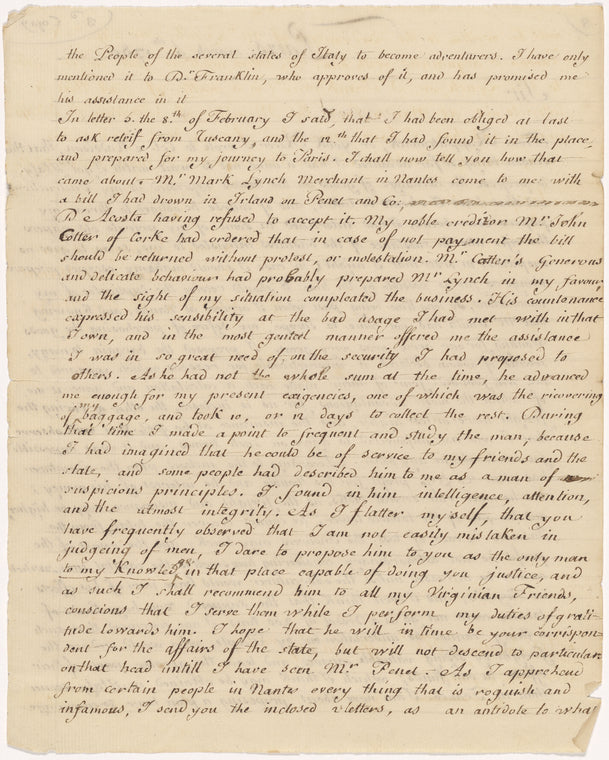 the People of the several states of Italy to become adventurers. I have only
mentioned it to Dr. Franklin, who approves of it, and has promised me
his assistance in it
In letter 5. the 8.th of February I said, that I had been obliged at last
to ask releif from Tuscany, and the 12th that I had found it in the place,
and prepared for my journey to Paris. I shall now tell you how that
came about. Mr. Mark Lynch Merchant in Nantes come to me with
a bill I had drown in Irland on Penet and Co.
D'Acosta having refused to accept it. My noble creditor Mr. John
Cotter of Corke had ordered that in case of not payment the bill
should be returned without protest, or molestation. Mr. Cotter's generous
and delicate behaviour had probably prepared Mr. Lynch in my favour
and the sight of my situation compleated the business. His countenance
expressed his sensibility at the bad usage I had met with in that
Town, and in the most genteel manner offered me the assistance
I was in so great need of, on the security I had proposed to
others. As he had not the whole sum at the time, he advanced
me enough for my present exigencies, one of which was the ricovering
of my baggage, and took 10, or 12 days to collect the rest. During
that time I made a point to frequent and study the man, because
I had imagined that he could be of service to my friends and the
state, and some people had described him to me as a man of
suspicious principles. I found in him intelligence, attention,
and the utmost integrity. As I flatter my self, that you
have frequently observed that I am not easily mistaken in
judgeing of men, I dare to propose him to you as the only man
to my Knowledge in that place capable of doing you justice, and
as such I shall recommend him to all my Virginian Friends,
conscious that I serve them while I perform my duties of grati-
tude towards him. I hope that he will in time be your corrispon-
dent for the affairs of the state, but will not descend to particulars
on that head intill I have seen Mr. Penet. As I apprehend
from certain people in Nantes every thing that is roguish and
infamous, I send you the inclosed 2 letters, as an antidote to what